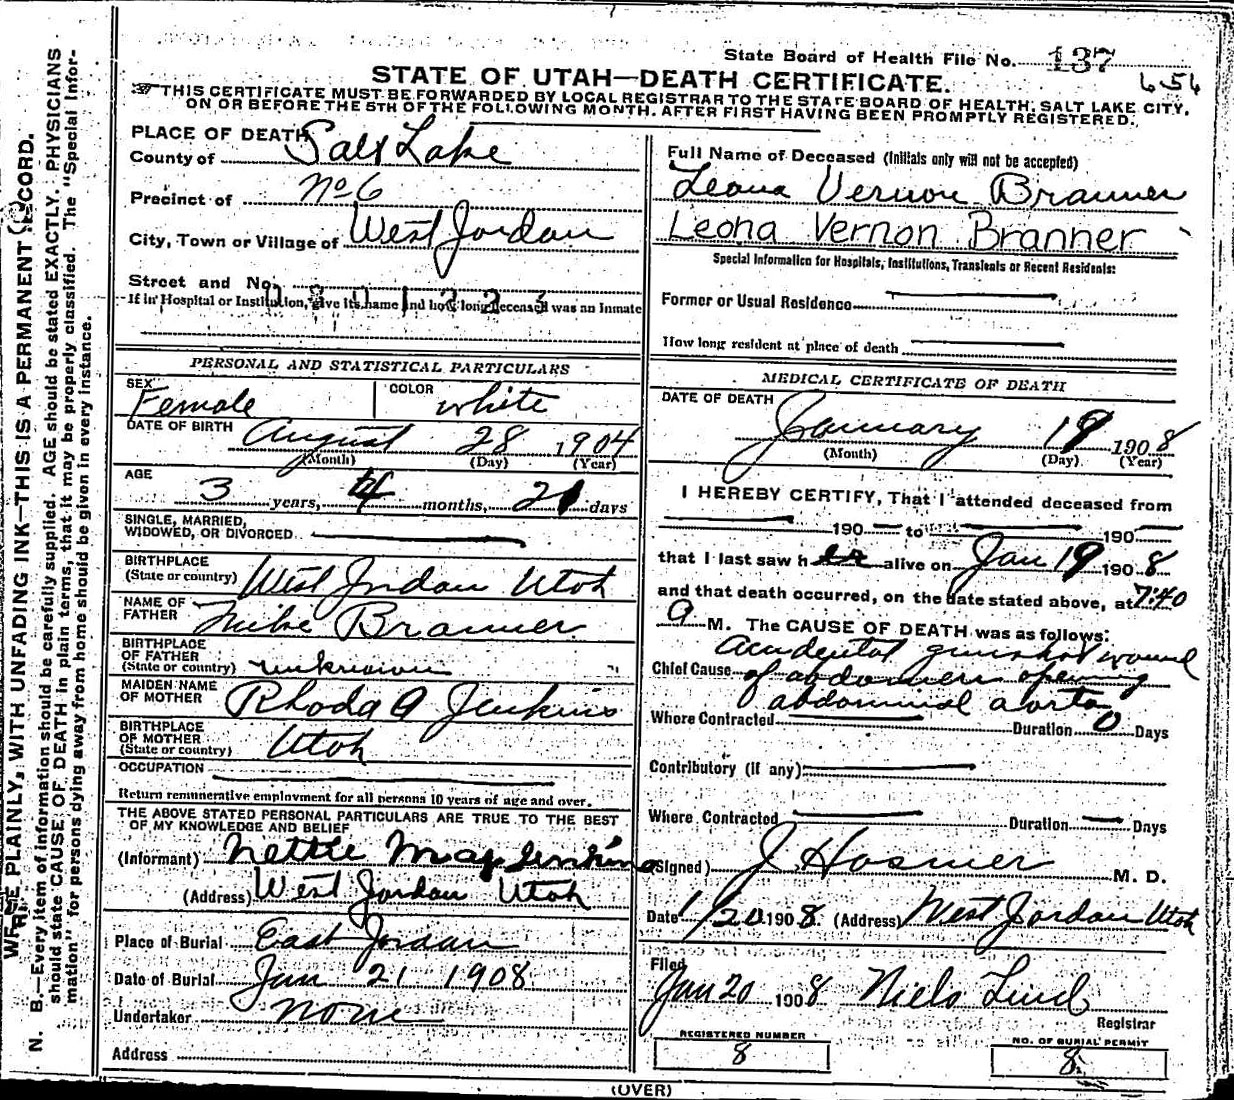 State Board of Health File No. 137
654
STATE OF UTAH—DEATH CERTIFICATE.
THIS CERTIFICATE MUST BE FORWARDED BY LOCAL REGISTRAR TO THE STATE BOARD OF HEALTH, SALT LAKE CITY,
ON OR BEFORE THE 5TH OF THE FOLLOWING MONTH. AFTER FIRST HAVING BEEN PROMPTLY REGISTERED.
PLACE OF DEATH
County of Salt Lake
Precinct of No 6
City, Town or Village of West Jordan
Street and No.
If in Hospital or Institution, give its name and how long deceased was an Inmate
PERSONAL AND STATISTICAL PARTICULARS
SEX Female COLOR white
DATE OF BIRTH August 28 1904
(Month) (Day) (Year)
AGE 3 years, 4 months, 21 days
SINGLE, MARRIED,
WIDOWED, OR DIVORCED
BIRTHPLACE
(State or country) West Jordan Utah
NAME OF
FATHER Mike Branner
BIRTHPLACE
OF FATHER
(State or country) unknown
MAIDEN NAME
OF MOTHER Rhoda A Jenkins
BIRTHPLACE
OF MOTHER
(State or country) Utah
OCCUPATION
Return remunerative employment for all persons 10 years of age and over.
THE ABOVE STATED PERSONAL PARTICULARS ARE TRUE TO THE BEST
OF MY KNOWLEDGE AND BELIEF
(Informant) Nettie May Jenkins
(Address) West Jordan Utah
Place of Burial East Jordan
Date of Burial Jan 21 1908
Undertaker None
Address
Full Name of Deceased (Initials only will not be accepted)
Leona Vernon Branner
Leona Vernon Branner
Special Information for Hospitals, Institutions, Transients or Recent Residents:
Former or Usual Residence
How long resident at place of death
MEDICAL CERTIFICATE OF DEATH
DATE OF DEATH
January 19 1908
(Month) (Day) (Year)
I HEREBY CERTIFY, That I attended deceased from
190 to 190
that I last saw her alive on Jan 19 1908
and that death occurred, on the date stated above, at 7:40
A M. The CAUSE OF DEATH was as follows:
Accidental gunshot wound
Chief Cause of abdomen opening
abdominal aorta
Where Contracted Duration 0 Days
Contributory (if any)
Where Contracted Duration Days
(Signed) J. Hosmer M. D.
Date 1/20 1908 (Address) West Jordan Utah
Filed
Jan 20 1908 Niels Lind
Registrar
REGISTERED NUMBER
8
NO. OF BURIAL PERMIT
8
(OVER)
WRITE PLAINLY, WITH UNFADING INK—THIS IS A PERMANENT RECORD.
N. B.—Every item of information should be carefully supplied. AGE should be stated EXACTLY. PHYSICIANS
should state CAUSE OF DEATH in plain terms, that it may be properly classified. The "Special Infor-
mation" for persons dying away from home should be given in every instance.